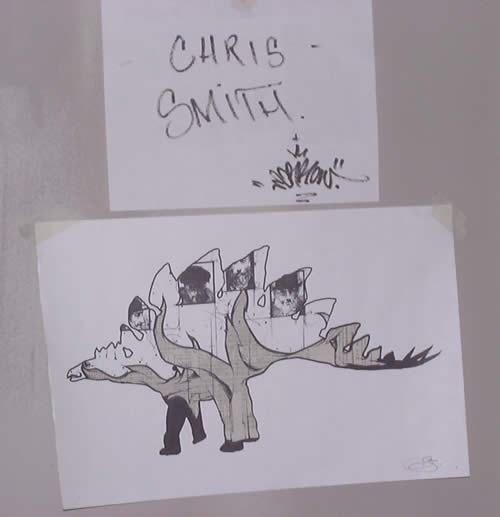 CHRIS -
SMITH.